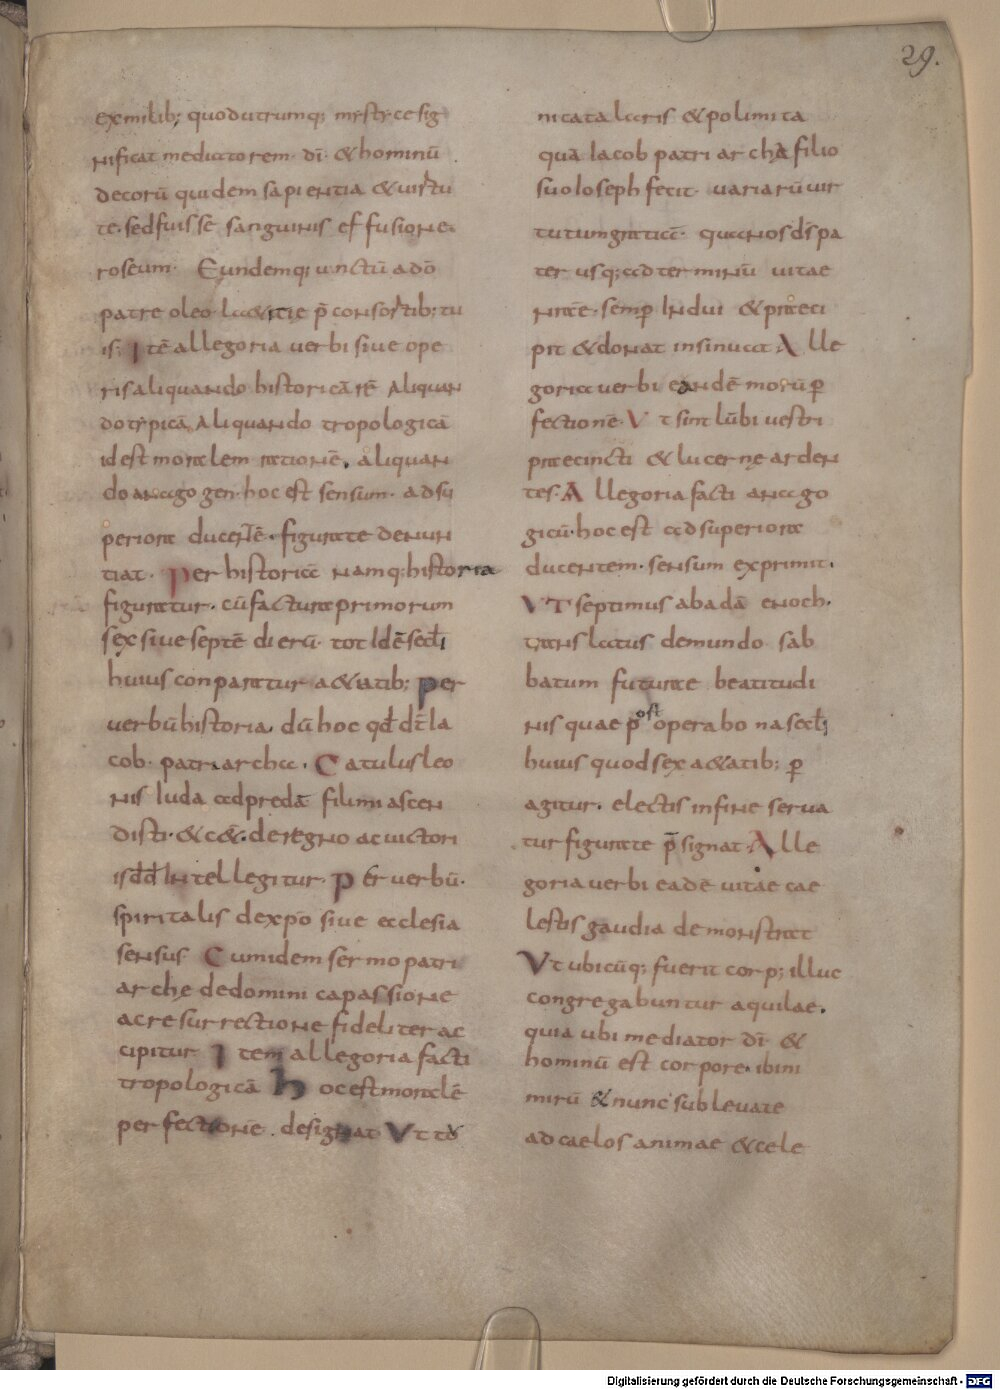 29.
ex milib; quod utrumq; mystyce sig
nificat mediatorem· dī· & hominū
decorū quidem sapientia & uirtu
te· sed fuisse sanguinis effusione·
roseum· Eundemq; unctū a dō
patre oleo laetitie p̄ consortib; tu
is; Itē allegoria uerbi siue ope
ris aliquando historicā rē Aliquan
do typicā Aliquando tropologicā
id est moralem rationē, aliquan
do anagogen· hoc est sensum· ad su
periora ducentē· figurate denun
tiat· Per historiā namq; historia
figuratur· cū factura primorum
sex siue septē dierū· totidē secłi
huius conparatur a&atib; per
uerbū historia· dū hoc qđ dt̄ Ia
cob· patriarcha· Catulus leo
nis Iuda ad predā fili mi ascen
disti· & c&̄· de regno ac uictori
is dđ Intellegitur· Per uerbū·
spiritalis de xp̄o siue ecclesia
sensus Cum idem sermo patri
arche de domini ca passione
ac resurrectione fideliter ac
cipitur Item allegoria facti
tropologicā hoc est moralē
perfectione· designat Vt to
nica talaris & polimita
quā Iacob patriarcha filio
suo Ioseph fecit· uariarū uir
tutum gratiā· qua nos ds̄ pa
ter usq; ad terminū uitae
nrae· semp Indui & praeci
pit & donat insinuat Alle
goria uerbi eandē morū p
fectionē· Vt sint lūbi uestri
praecincti & lucernę arden
tes· Allegoria facti anago
gicū· hoc est ad superiora
ducentem· sensum exprimit·
VT septimus ab adā enoch·
translatus de mundo sab
batum futurae beatitudi
nis quae post opera bona secłi
huius quod sex a&atib; p
agitur· electis in fine serua
tur figurate p̄signat· Alle
goria uerbi eadē uitae cae
lestis gaudia demonstrat
Vt ubicūq; fuerit corp; illuc
congregabuntur aquilae·
quia ubi mediator dī &
hominū est corpore· ibi ni
mirū & nunc subleuate
ad caelos animae & cele
Digitalisierung gefördert durch die Deutsche Forschungsgemeinschaft - DFG